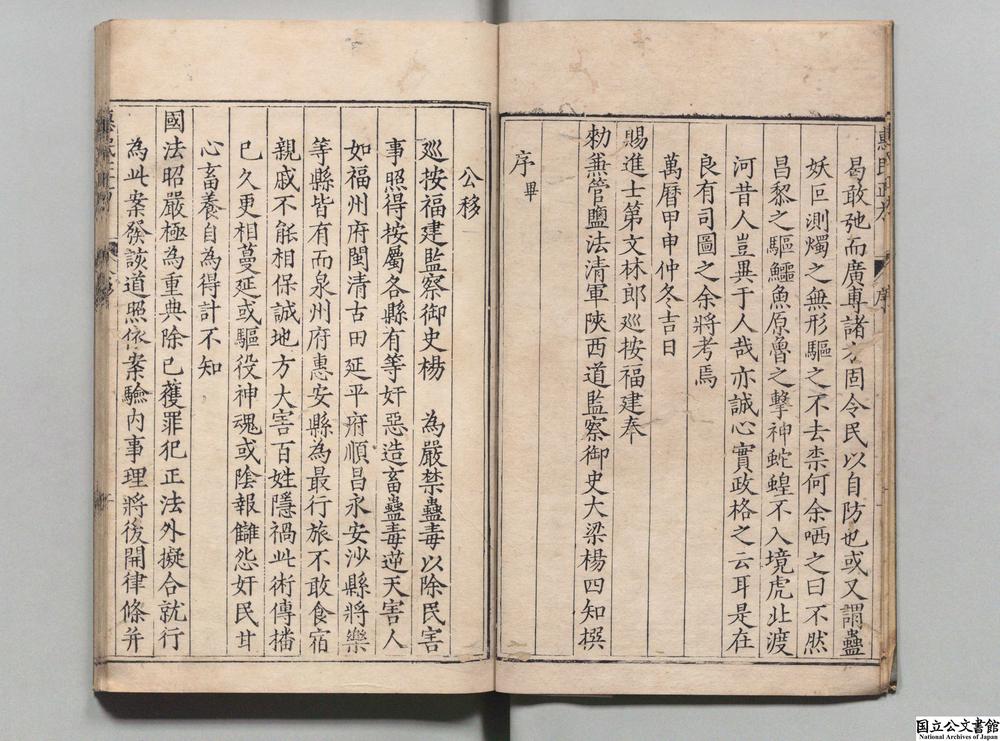 曷敢弛而廣專諸方固令民以自防也或又謂蠱
妖叵測燭之無形驅之不去柰何余哂之曰不然
昌黎之驅鱷魚原魯之擊神蛇蝗不入境虎北渡
河昔人豈異于人哉亦誠心實政格之云耳是在
良有司圖之余將考焉
萬曆甲申仲冬吉日
賜進士第文林郎巡按福建奉
勅兼管鹽法清軍陝西道監察御史大梁楊四知撰
序畢
公移
巡按福建監察御史楊 為嚴禁蠱毒以除民害
事照得按屬各縣有等奸惡造畜蠱毒逆天害人
如福州府閩清古田延平府順昌永安沙縣將樂
等縣皆有而泉州府惠安縣為最行旅不敢食宿
親戚不能相保誠地方大害百姓隱禍此術傳播
已久更相蔓延或驅役神魂或陰報讎怨奸民甘
心畜養自為得計不知
國法昭嚴極為重典除已獲罪犯正法外擬合就行
為此案發該道照依案驗內事理將後開律條并
国立公文書館
National Archives of Japan